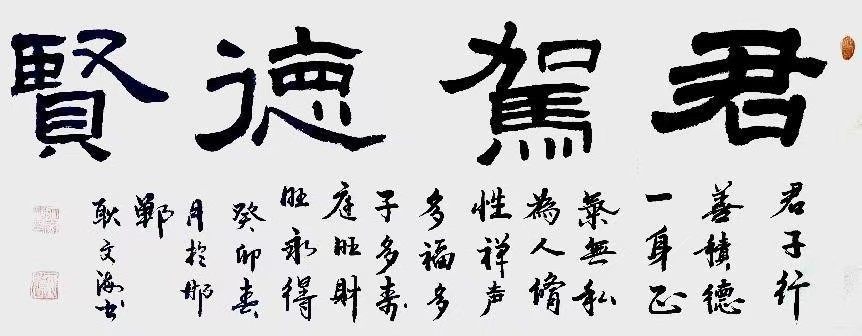 君駕德賢
君子行
善積德
一身正
氣無私
為人脩
性祥声
多福多
子多寿
庭旺財
旺永得
癸卯春
月於邯
鄲
耿文海书